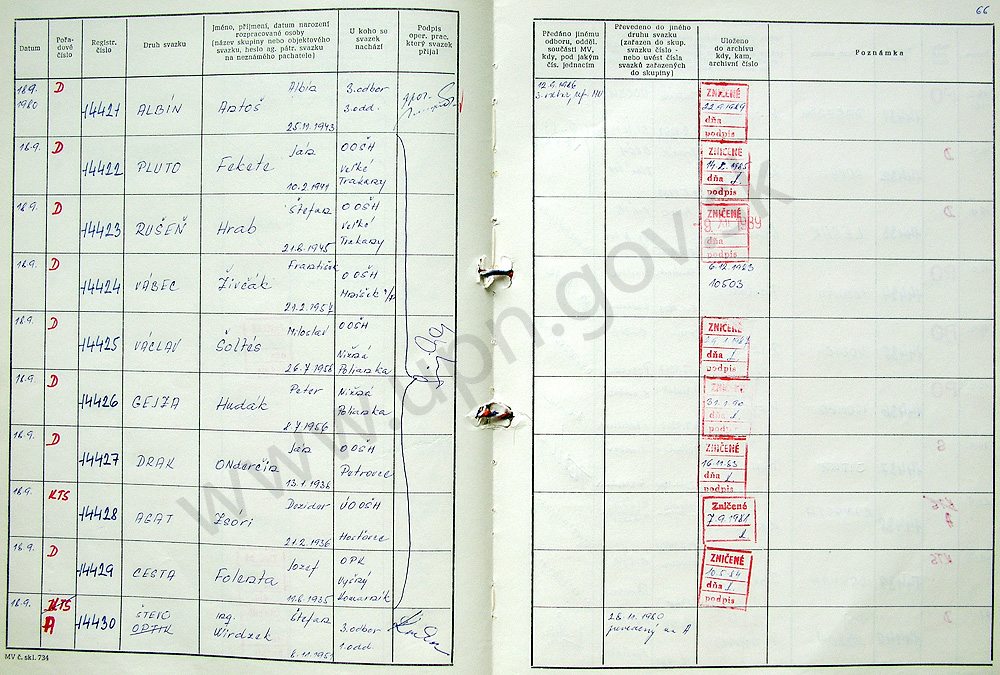 66
Datum
Pořa-
dové
číslo
Registr.
číslo
Druh svazku
Jméno, příjmení, datum narození
rozpracované osoby
(název skupiny nebo objektového
svazku, heslo ag. pátr. svazku
na neznámého pachatele)
U koho se
svazek
nachází
Podpis
oper. prac.
který svazek
přijal
Předáno jinému
odboru, odděl.
součásti MV,
kdy, pod jakým
čís. jednacím
Převedeno do jiného
druhu svazku
(zařazen do skup.
svazku číslo -
nebo uvést čísla
svazků zařazených
do skupiny)
Uloženo
do archívu
kdy, kam,
archivní číslo
Poznámka
18.9.
1980
D
14421
ALBÍN
Albín
Antoš
25.11.1943
3. odbor
3. odd.
12.9.1986
ZNIČENÉ
22.9.1989
dňa
podpis
18.9.
D
14422
PLUTO
Ján
Fekete
10.2.1941
OOŠH
Veľké
Trakany
ZNIČENÉ
dňa
podpis
18.9.
D
14423
RUŠEŇ
Štefan
Hrab
21.8.1945
OOŠH
Veľké
Trakany
ZNIČENÉ
dňa
podpis
18.9.
D
14424
VÁBEC
František
Živčák
OOŠH
6.12.1983
10503
18.9.
D
14425
VÁCLAV
Miloslav
Šoltés
26.7.1956
OOŠH
Nižná
Polianka
ZNIČENÉ
dňa
podpis
18.9.
D
14426
GEJZA
Peter
Hudák
Nižná
Polianka
ZNIČENÉ
31.1.90
dňa
podpis
18.9.
D
14427
DRAK
Ján
Onderčin
13.1.1936
OOŠH
Petrovce
ZNIČENÉ
16.11.83
dňa
podpis
18.9.
KTS
14428
AGAT
Dezider
Zsóri
21.2.1936
ÚOOŠH
Hosťovce
Zničené
7.9.1981
18.9.
D
14429
CESTA
Jozef
Folenta
11.6.1935
OPK
Vyšný
Komárnik
ZNIČENÉ
10.5.84
dňa
podpis
18.9.
KTS
A
14430
ŠTEVO
OPTIK
Ing. Štefan
Wirdzek
6.11.1951
3. odbor
1. odd.
28.11.1980
prevedený na A
MV č. skl. 734
www.upn.gov.sk